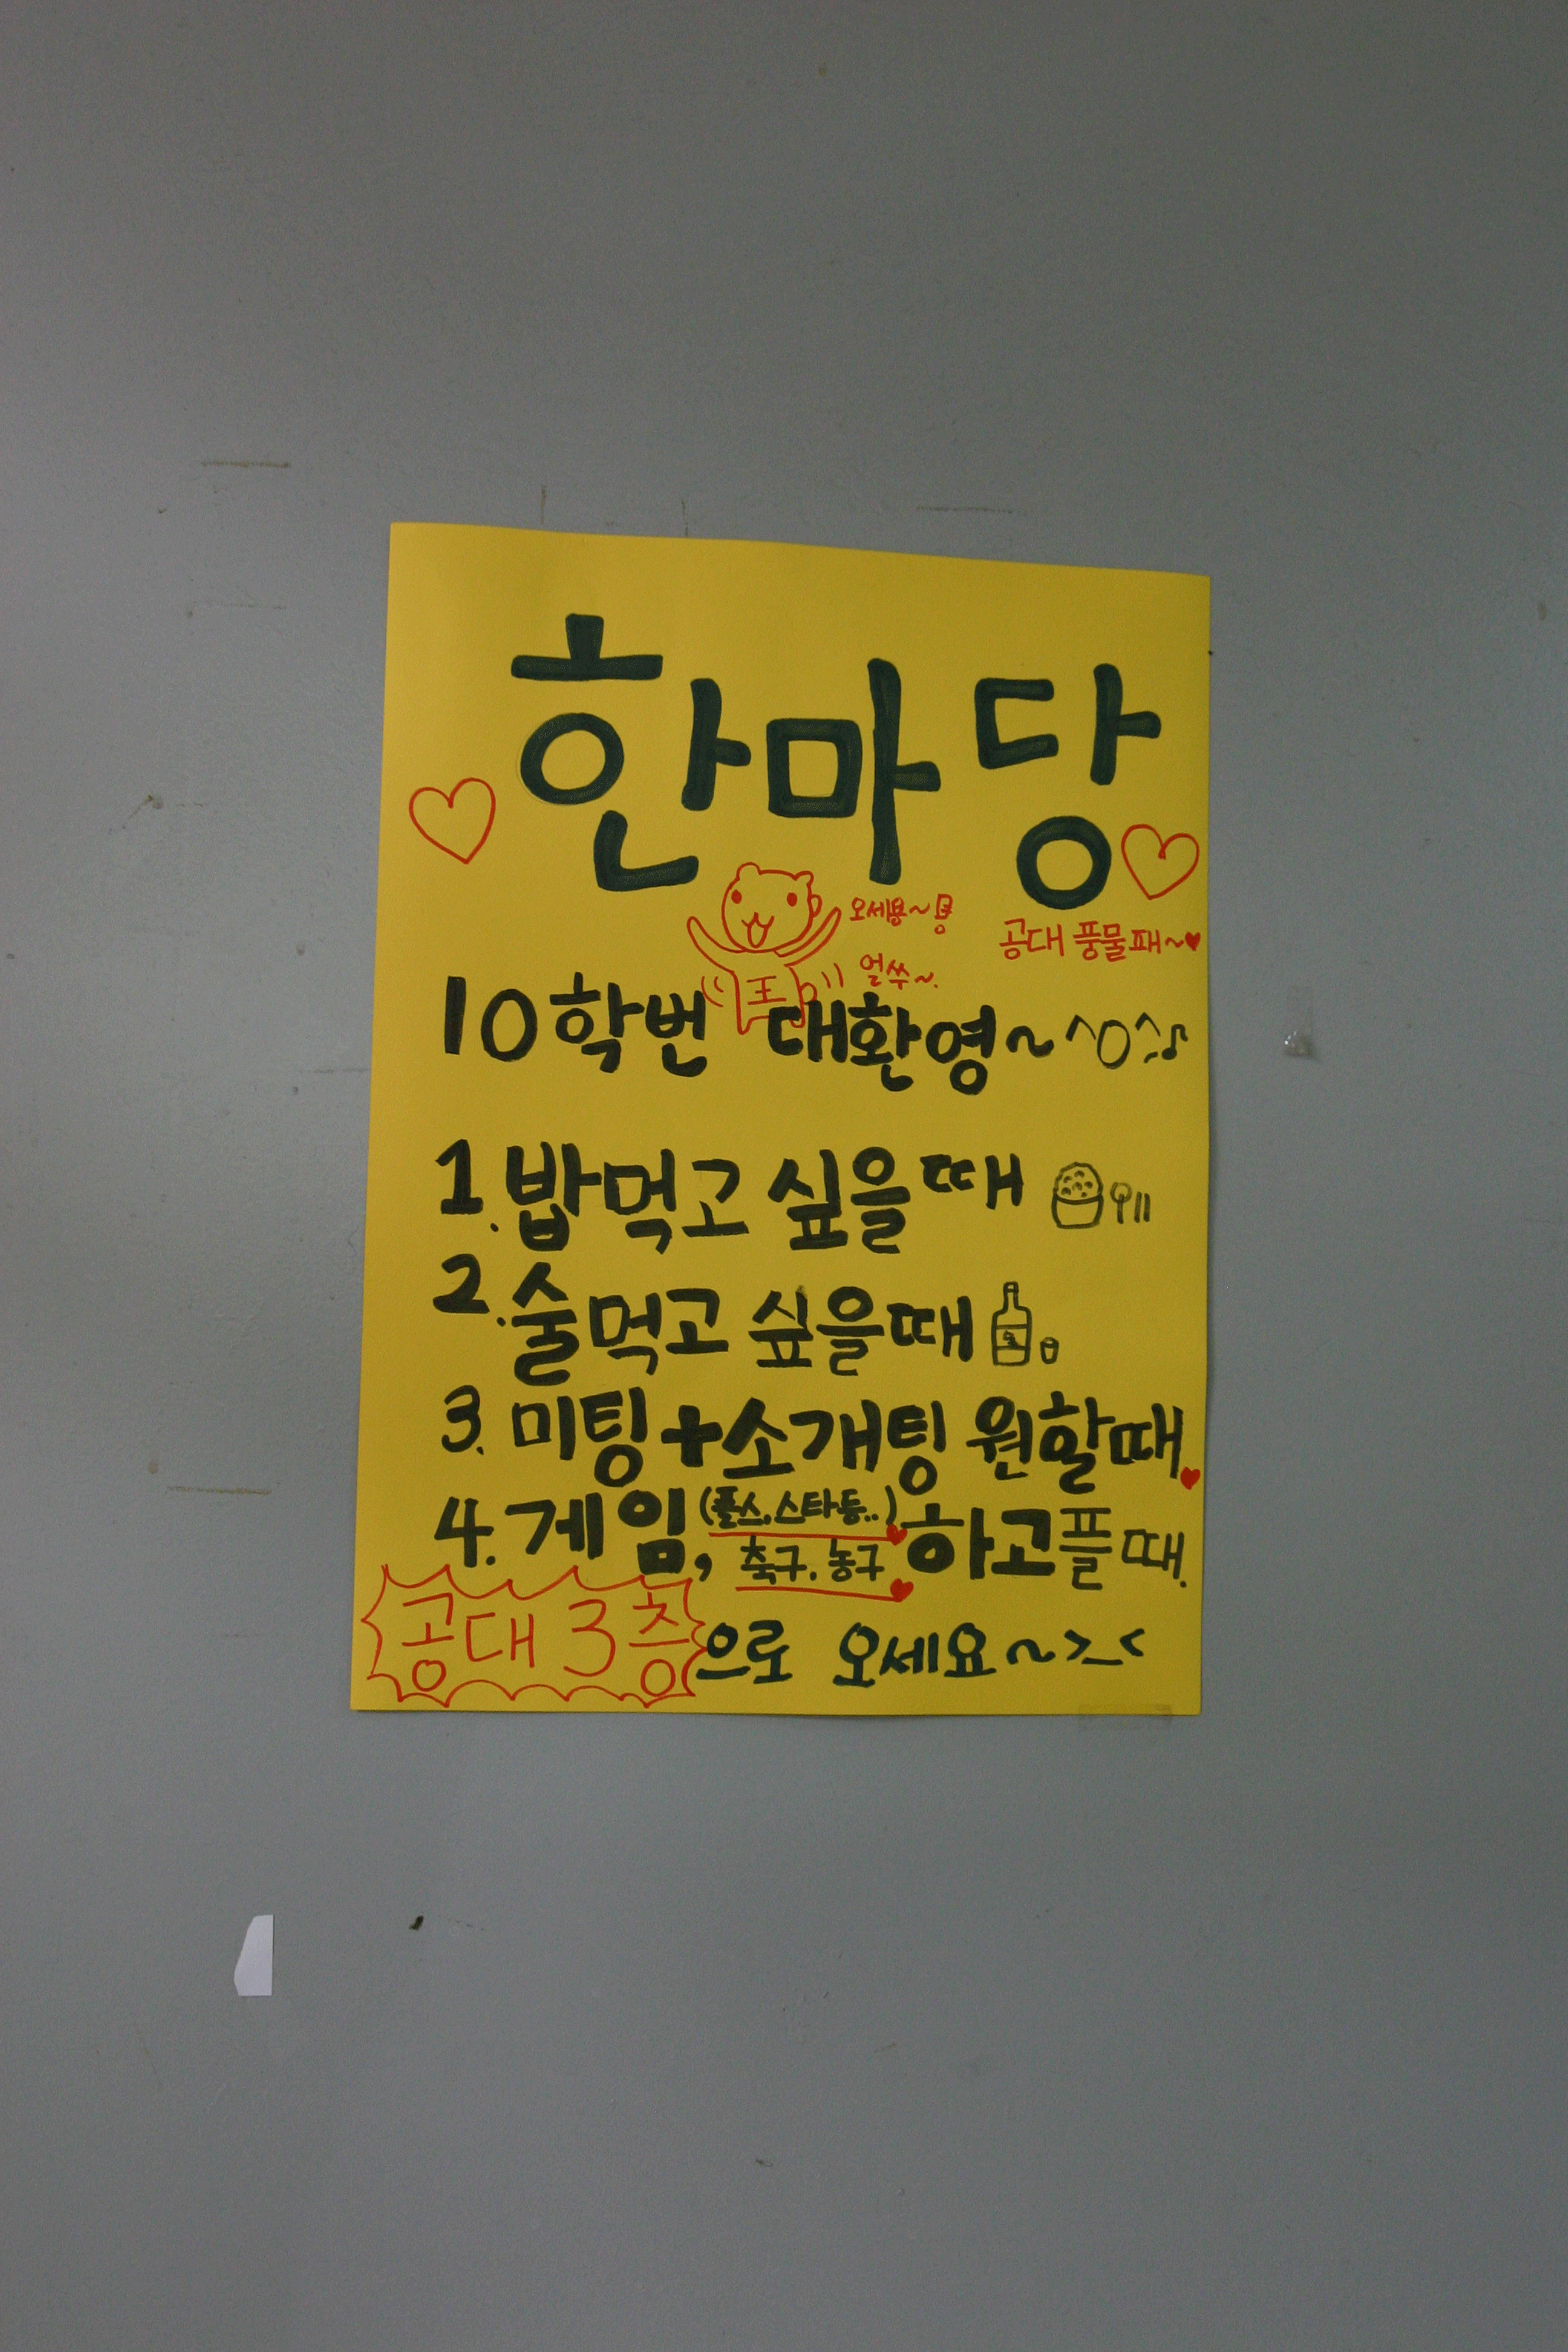 한마당
오세용~용
공대 풍물패~♥
얼쑤~.
王
10학번 대환영~^O^♪
1. 밥먹고 싶을때
2. 술먹고 싶을때
3. 미팅+소개팅 원할때
4. 게임, (플스.스타등..) 하고플때.
축구. 농구
공대 3층으로 오세요~>_<